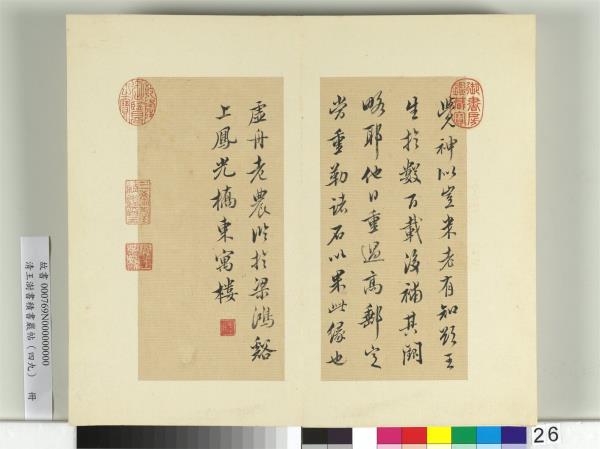 覺神似豈米老有知畀王
生於數百載後補其闕
略耶他日重過高郵定
當重勒諸石以果此緣也
虛舟老農臨於梁鴻谿
上鳳光橋東寓樓
御書房鑑藏寶
故書 000769N000000000
清王澍書積書巖帖（四九） 冊
26